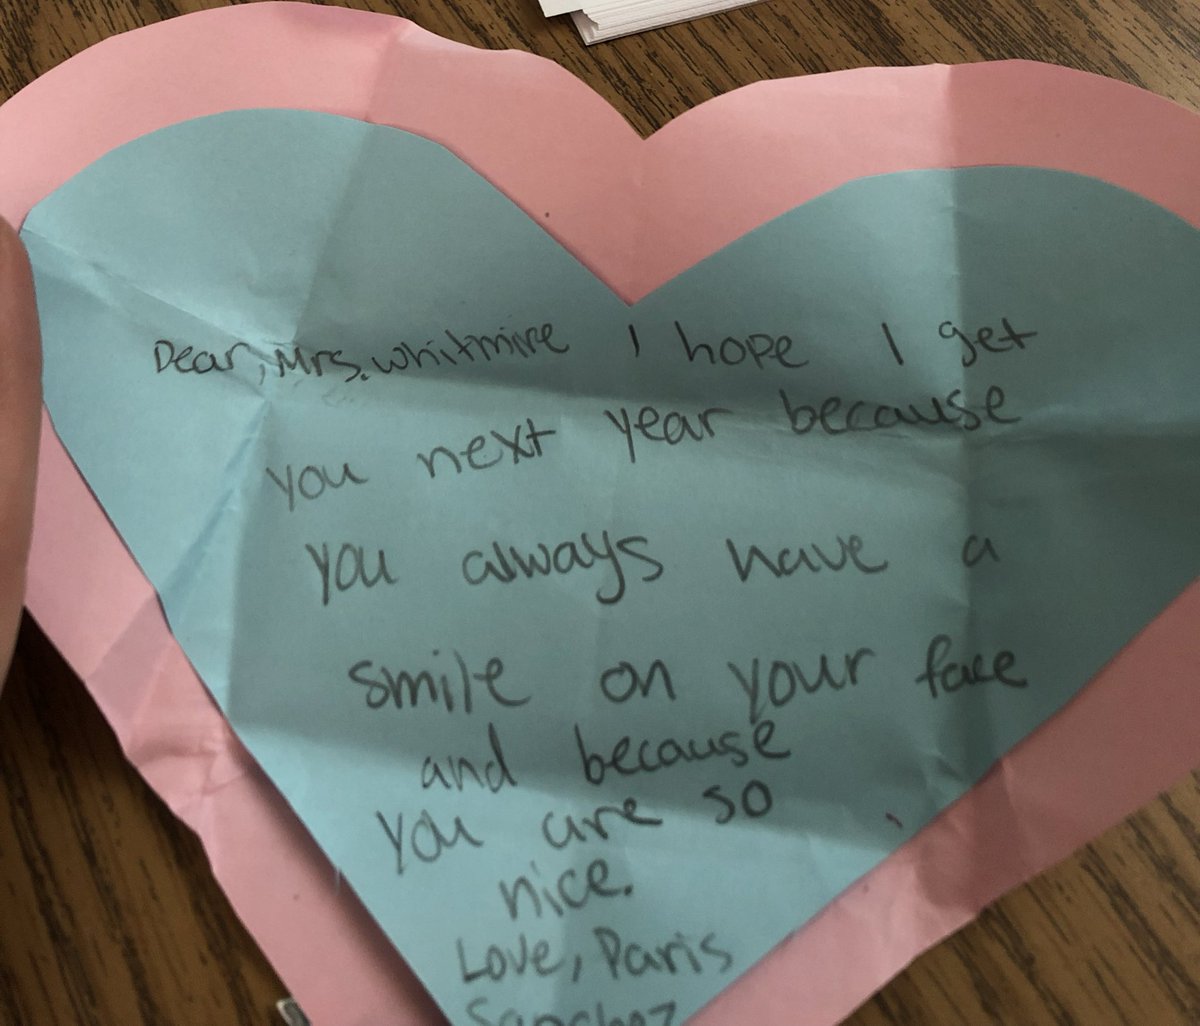 Dear, Mrs. Whitmire I hope I get
you next year because
you always have a
smile on your face
and because
you are so
nice.
Love, Paris
Sanchez